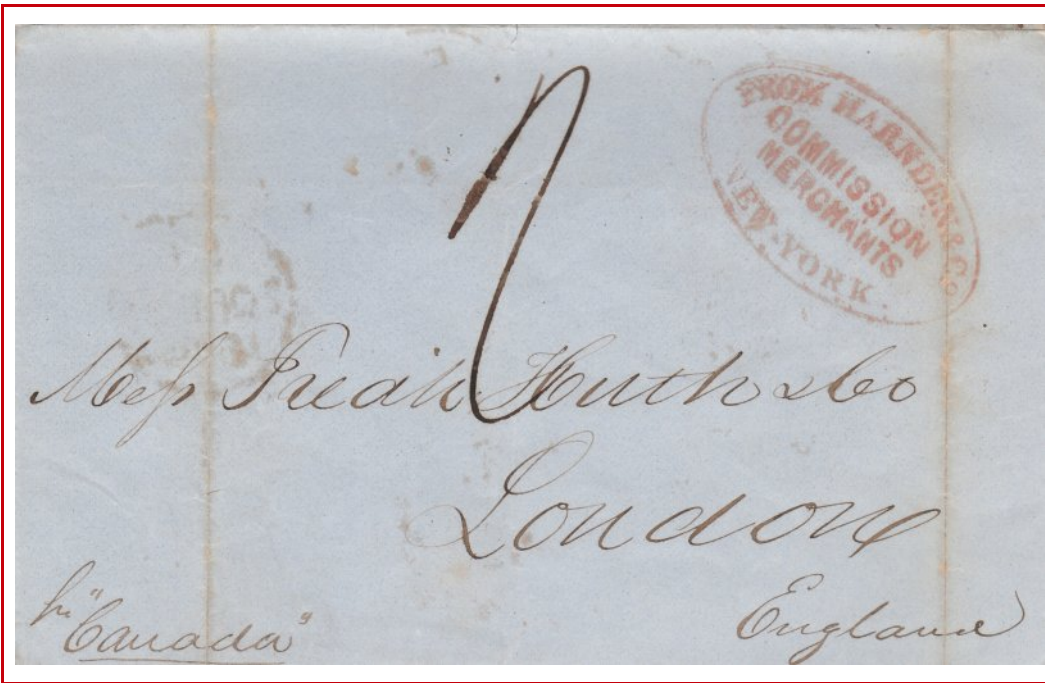 FROM HARNDEN & Co
COMMISSION
MERCHANTS
NEW-YORK.
Mess Fredk Huth & Co
London
England
pr "Canada"